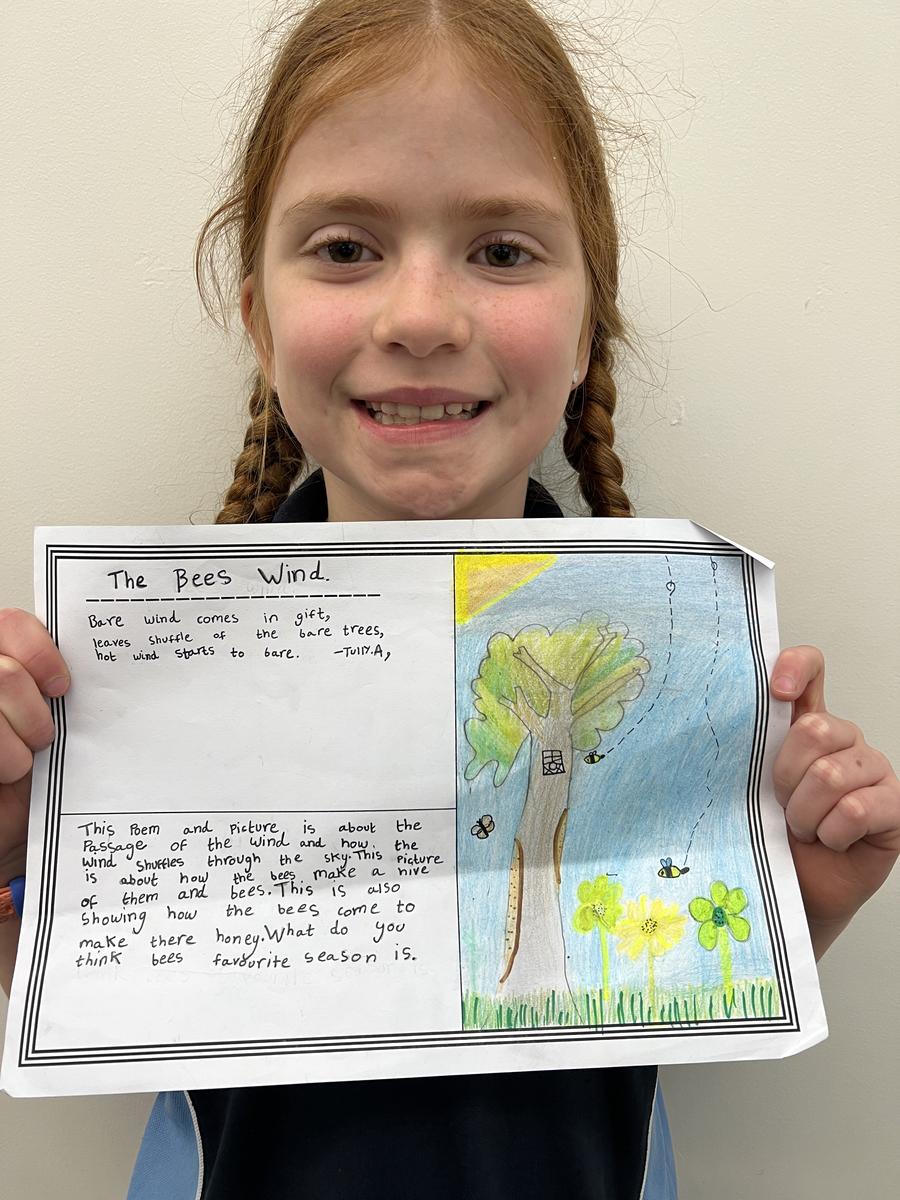 The Bees Wind.
Bare wind comes in gift,
leaves shuffle of the bare trees,
hot wind starts to bare. -Tully.A,
This Poem and Picture is about the
Passage of the wind and how the
wind shuffles through the sky.This Picture
is about how the bees make a hive
of them and bees.This is also
showing how the bees come to
make there honey.What do you
think bees favourite season is.